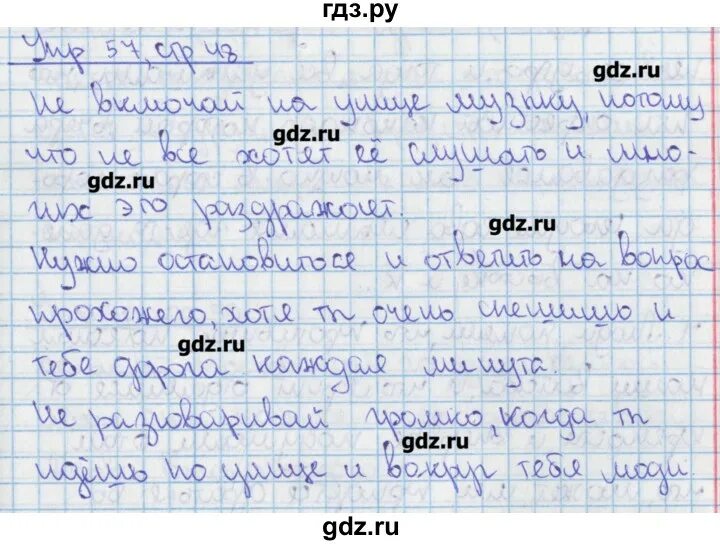 гдз.ру
Упр 57, стр 48
gdz.ru
Не включай на улице музыку, потому
gdz.ru
что не все хотят её слушать и мно-
gdz.ru
гих это раздражает.
gdz.ru
Нужно остановиться и ответить на вопрос
прохожего, хотя ты очень спешишь и
gdz.ru
тебе дорога каждая минута.
Не разговаривай громко, когда ты
gdz.ru
идёшь по улице и вокруг тебя люди.
gdz.ru